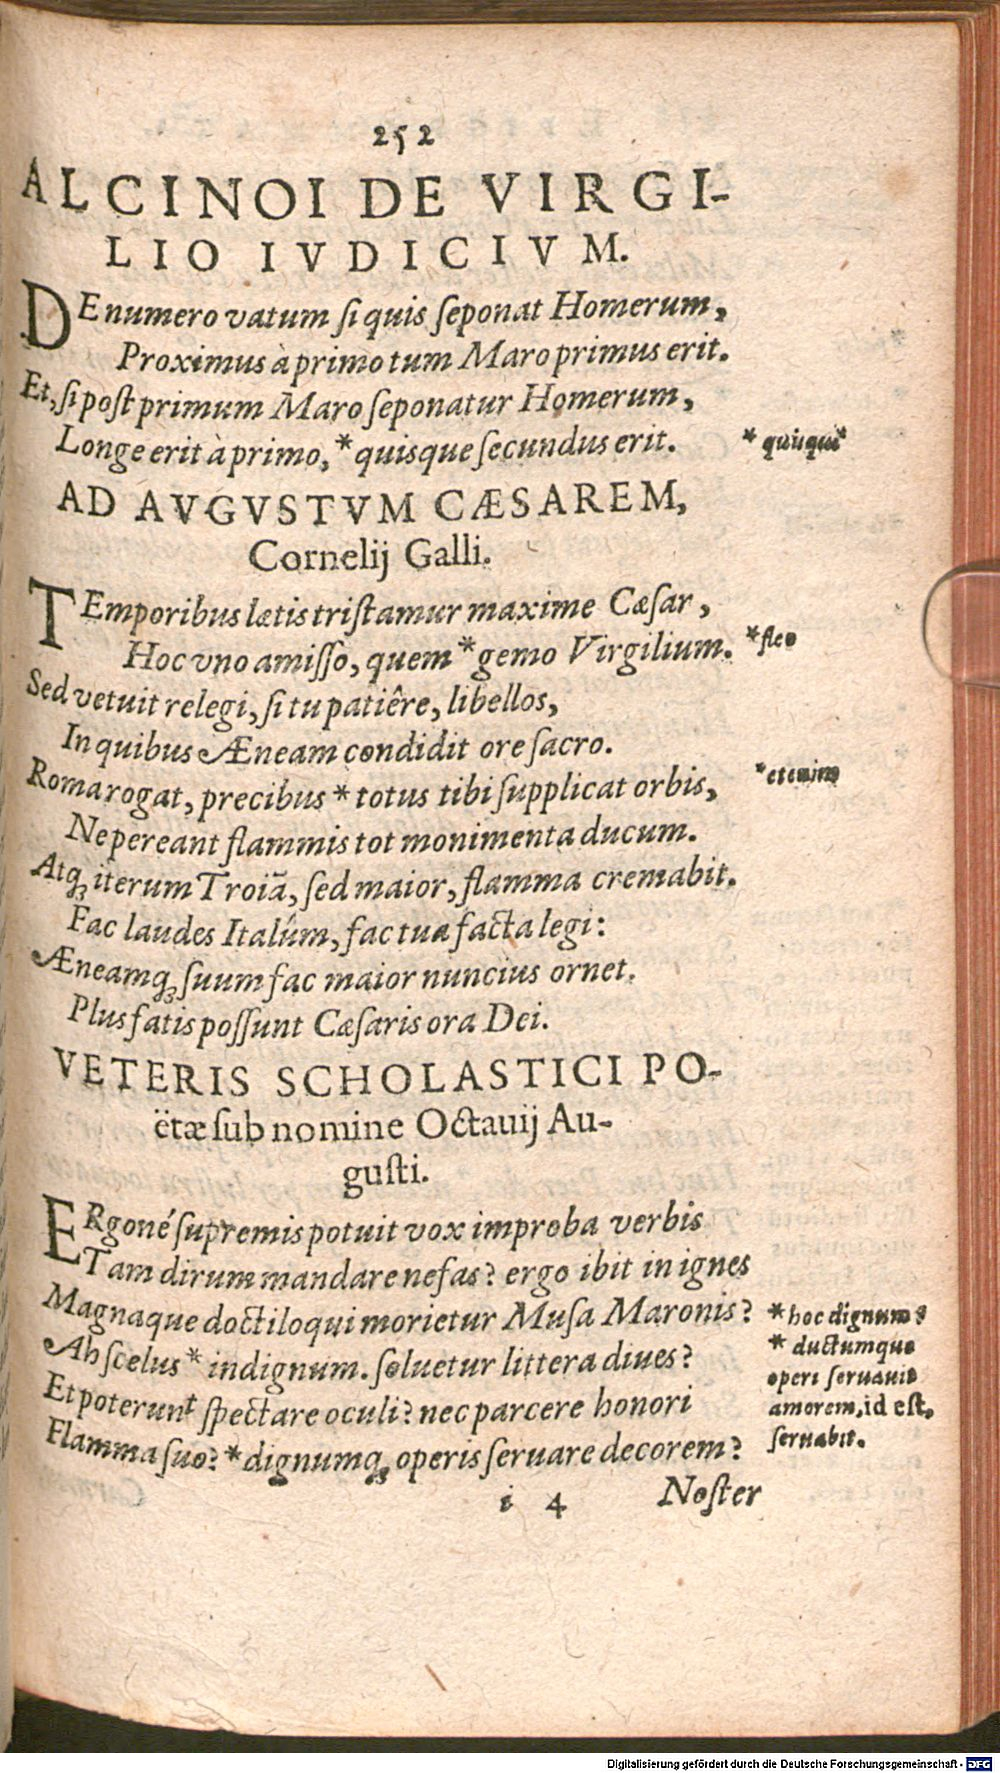 252
ALCINOI DE VIRGI-
LIO IVDICIVM.
DE numero vatum ſi quis ſeponat Homerum,
Proximus à primo tum Maro primus erit.
Et, ſi poſt primum Maro ſeponatur Homerum,
Longe erit à primo, *quisque ſecundus erit.
* quiuqui*
AD AVGVSTVM CÆSAREM,
Cornelij Galli.
TEmporibus lætis triſtamur maxime Cæſar,
Hoc vno amiſſo, quem *gemo Virgilium.
*fleo
Sed vetuit relegi, ſi tu patiêre, libellos,
In quibus Æneam condidit ore ſacro.
Roma rogat, precibus * totus tibi ſupplicat orbis,
*etenim
Ne pereant flammis tot monimenta ducum.
Atq; iterum Troiā, ſed maior, flamma cremabit.
Fac laudes Italûm, fac tua facta legi:
Æneamq; ſuum fac maior nuncius ornet.
Plus fatis poſſunt Cæſaris ora Dei.
VETERIS SCHOLASTICI PO-
ëtæ ſub nomine Octauij Au-
guſti.
ERgoné ſupremis potuit vox improba verbis
Tam dirum mandare nefas? ergo ibit in ignes
Magnaque doctiloqui morietur Muſa Maronis?
Ah ſcelus * indignum. ſoluetur littera diues?
Et poterunt ſpectare oculi? nec parcere honori
Flamma ſuo? *dignumq; operis ſeruare decorem?
* hoc dignum?
* ductumque
operi ſeruauit
amorem, id eſt,
ſeruabit.
i 4 Noſter
Digitalisierung gefördert durch die Deutsche Forschungsgemeinschaft - DFG